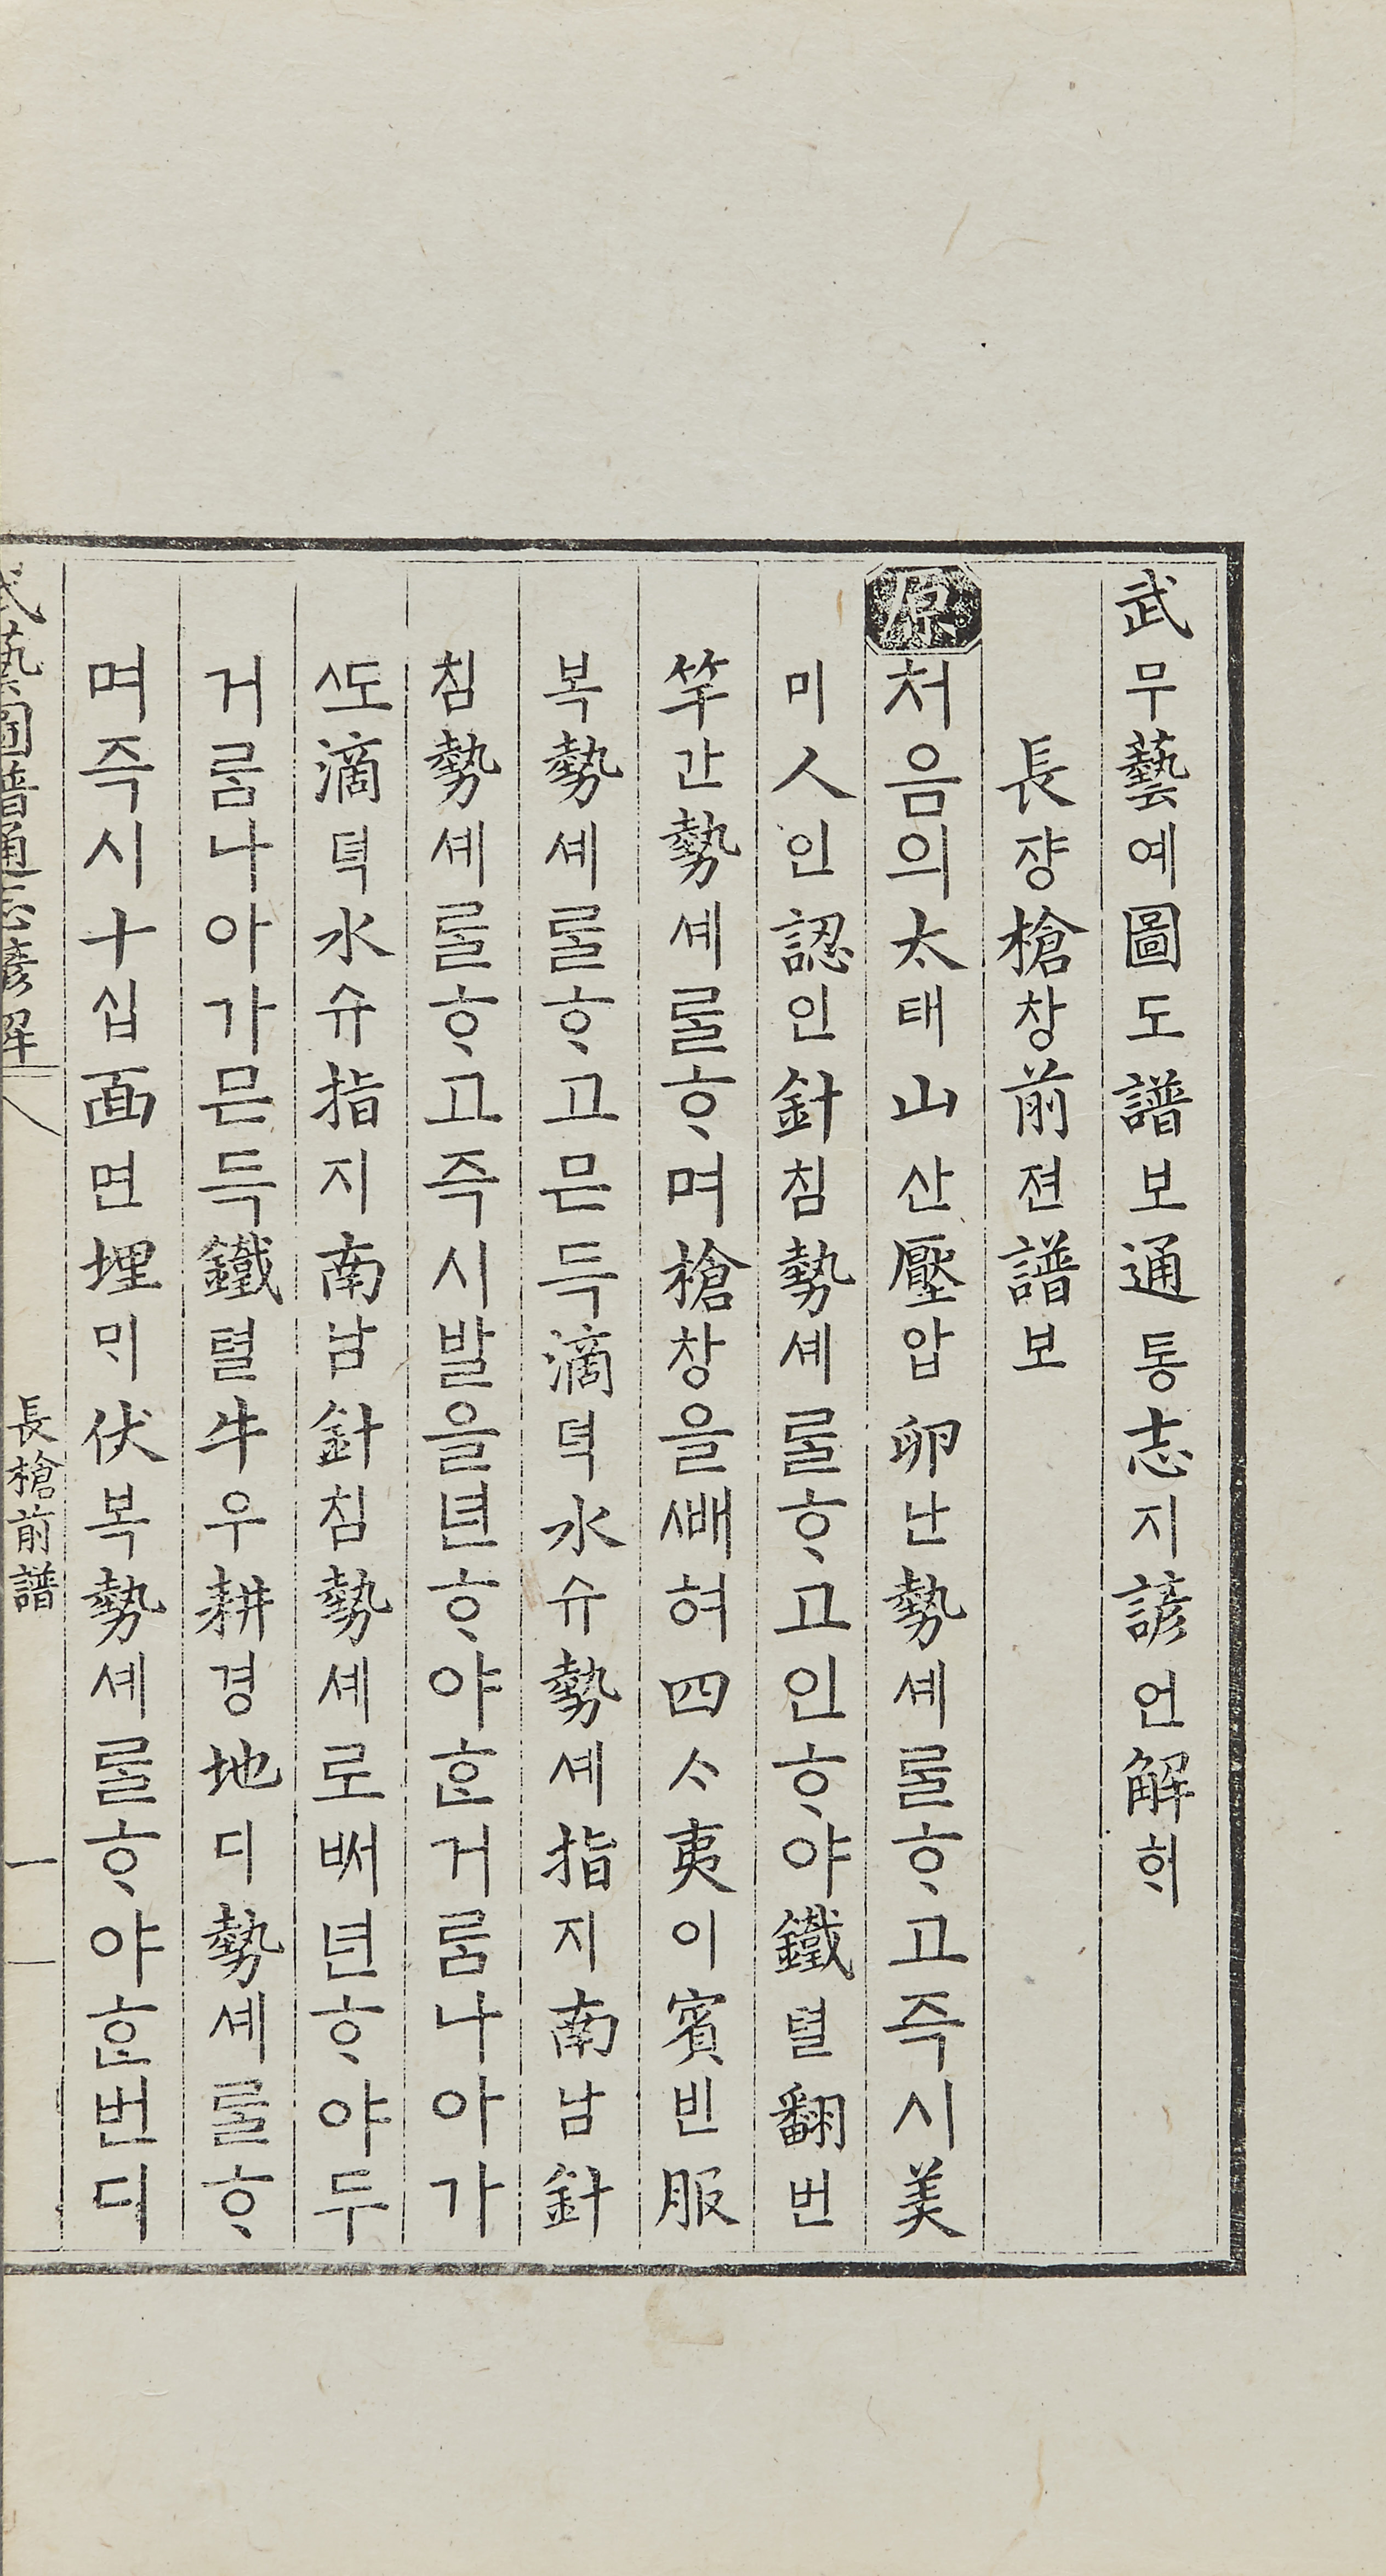 武무藝예圖도譜보通통志지諺언解ᄒᆡ
長쟝槍창前젼譜보
原처음의太태山산壓압卵난勢셰ᄅᆞᆯᄒᆞ고즉시美
미人인認인針침勢셰ᄅᆞᆯᄒᆞ고인ᄒᆞ야鐵텰翻번
竿간勢셰ᄅᆞᆯᄒᆞ며槍창을ᄲᅢ혀四ᄉᆞ夷이賓빈服
복勢셰ᄅᆞᆯᄒᆞ고믄득滴뎍水슈勢셰指지南남針
침勢셰ᄅᆞᆯᄒᆞ고즉시발을년ᄒᆞ야ᄒᆞᆫ거ᄅᆞᆷ나아가
ᄯᅩ滴뎍水슈指지南남針침勢셰로ᄡᅥ년ᄒᆞ야두
거ᄅᆞᆷ나아가믄득鐵텰牛우耕경地디勢셰ᄅᆞᆯᄒᆞ
며즉시十십面면埋ᄆᆡ伏복勢셰ᄅᆞᆯᄒᆞ야ᄒᆞᆫ번디
武藝圖譜通志諺解 長槍前譜 一